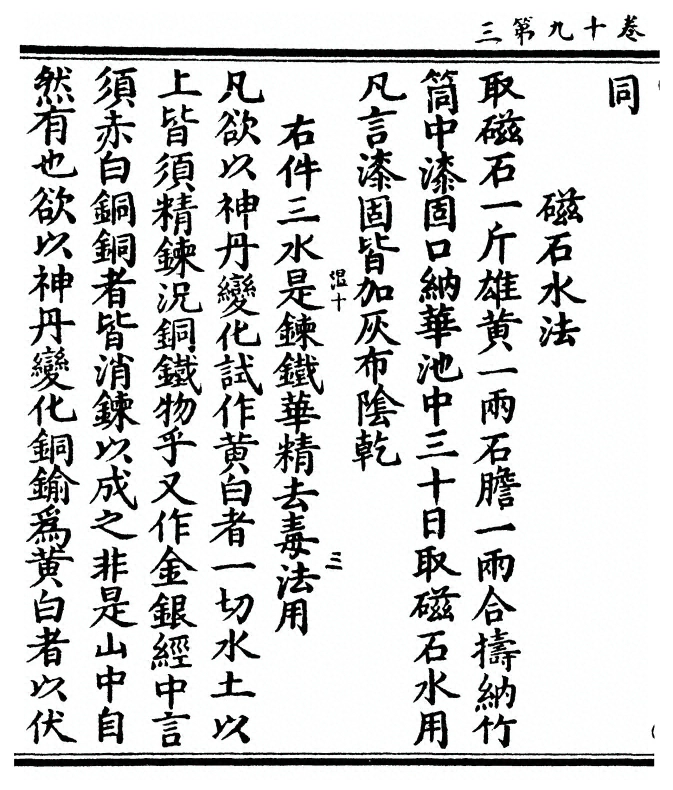 三第九十卷
同
磁石水法
取磁石一斤雄黄一兩石膽一兩合擣納竹
筒中漆固口納華池中三十日取磁石水用
凡言漆固皆加灰布陰乾
温十 三
右件三水是鍊鐵華精去毒法用
凡欲以神丹變化試作黄白者一切水土以
上皆須精鍊況銅鐵物乎又作金銀經中言
須赤白銅銅者皆消鍊以成之非是山中自
然有也欲以神丹變化銅鍮爲黄白者以伏